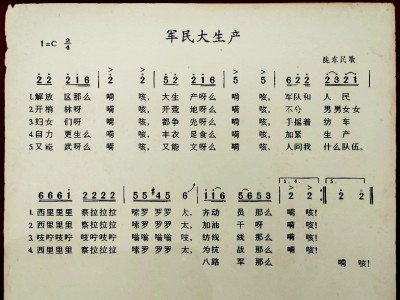 军民大生产
1=C 2/4
陇东民歌
2 2 2 1 6 2 2 2 2 2 1 6 5 5 6 2 2 2 3 2 1
1.解放 区那么 嗬 咳， 大生 产呀么 嗬 咳， 军队和 人 民
2.开梢 林呀 嗬 咳， 开荒 地呀么 嗬 咳， 不分 男男女女
3.妇女 们呀 嗬 咳， 都争 先呀么 嗬 咳， 手摇着 纺 车
4.自力 更生么 嗬 咳， 丰衣 足食么 嗬 咳， 加紧 生 产
5.又能 武呀么 嗬 咳， 又能 文呀么 嗬 咳， 人问我 什么队伍，
6 6 6 1 2 2 2 2 5 5 4 5 6 1 1 6 5 6 5 3 2 2 2 2
1.4. 5.
1. 西里里里 察拉拉拉 嗦罗 罗罗 太， 齐动 员那么 嗬 咳！
2. 西里里里 察拉拉拉 嗦罗 罗罗 太， 加油 干呀 嗬 咳！
3. 吱咛吱咛 吱咛吱咛 嗡嗡 嗡嗡 吱， 纺线 线那么 嗬 咳！
4. 西里里里 察拉拉拉 嗦罗 罗罗 太， 为抗 战那么 嗬 咳！
八路 军那么 嗬 咳！